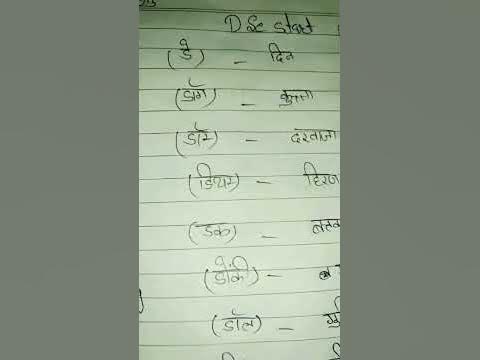 D Se start
(डे) - दिन
(डॉग) - कुत्ता
(डॉर) - दरवाजा
(डियर) - हिरण
(डक) -
(डोंकी) -
(डॉल) -